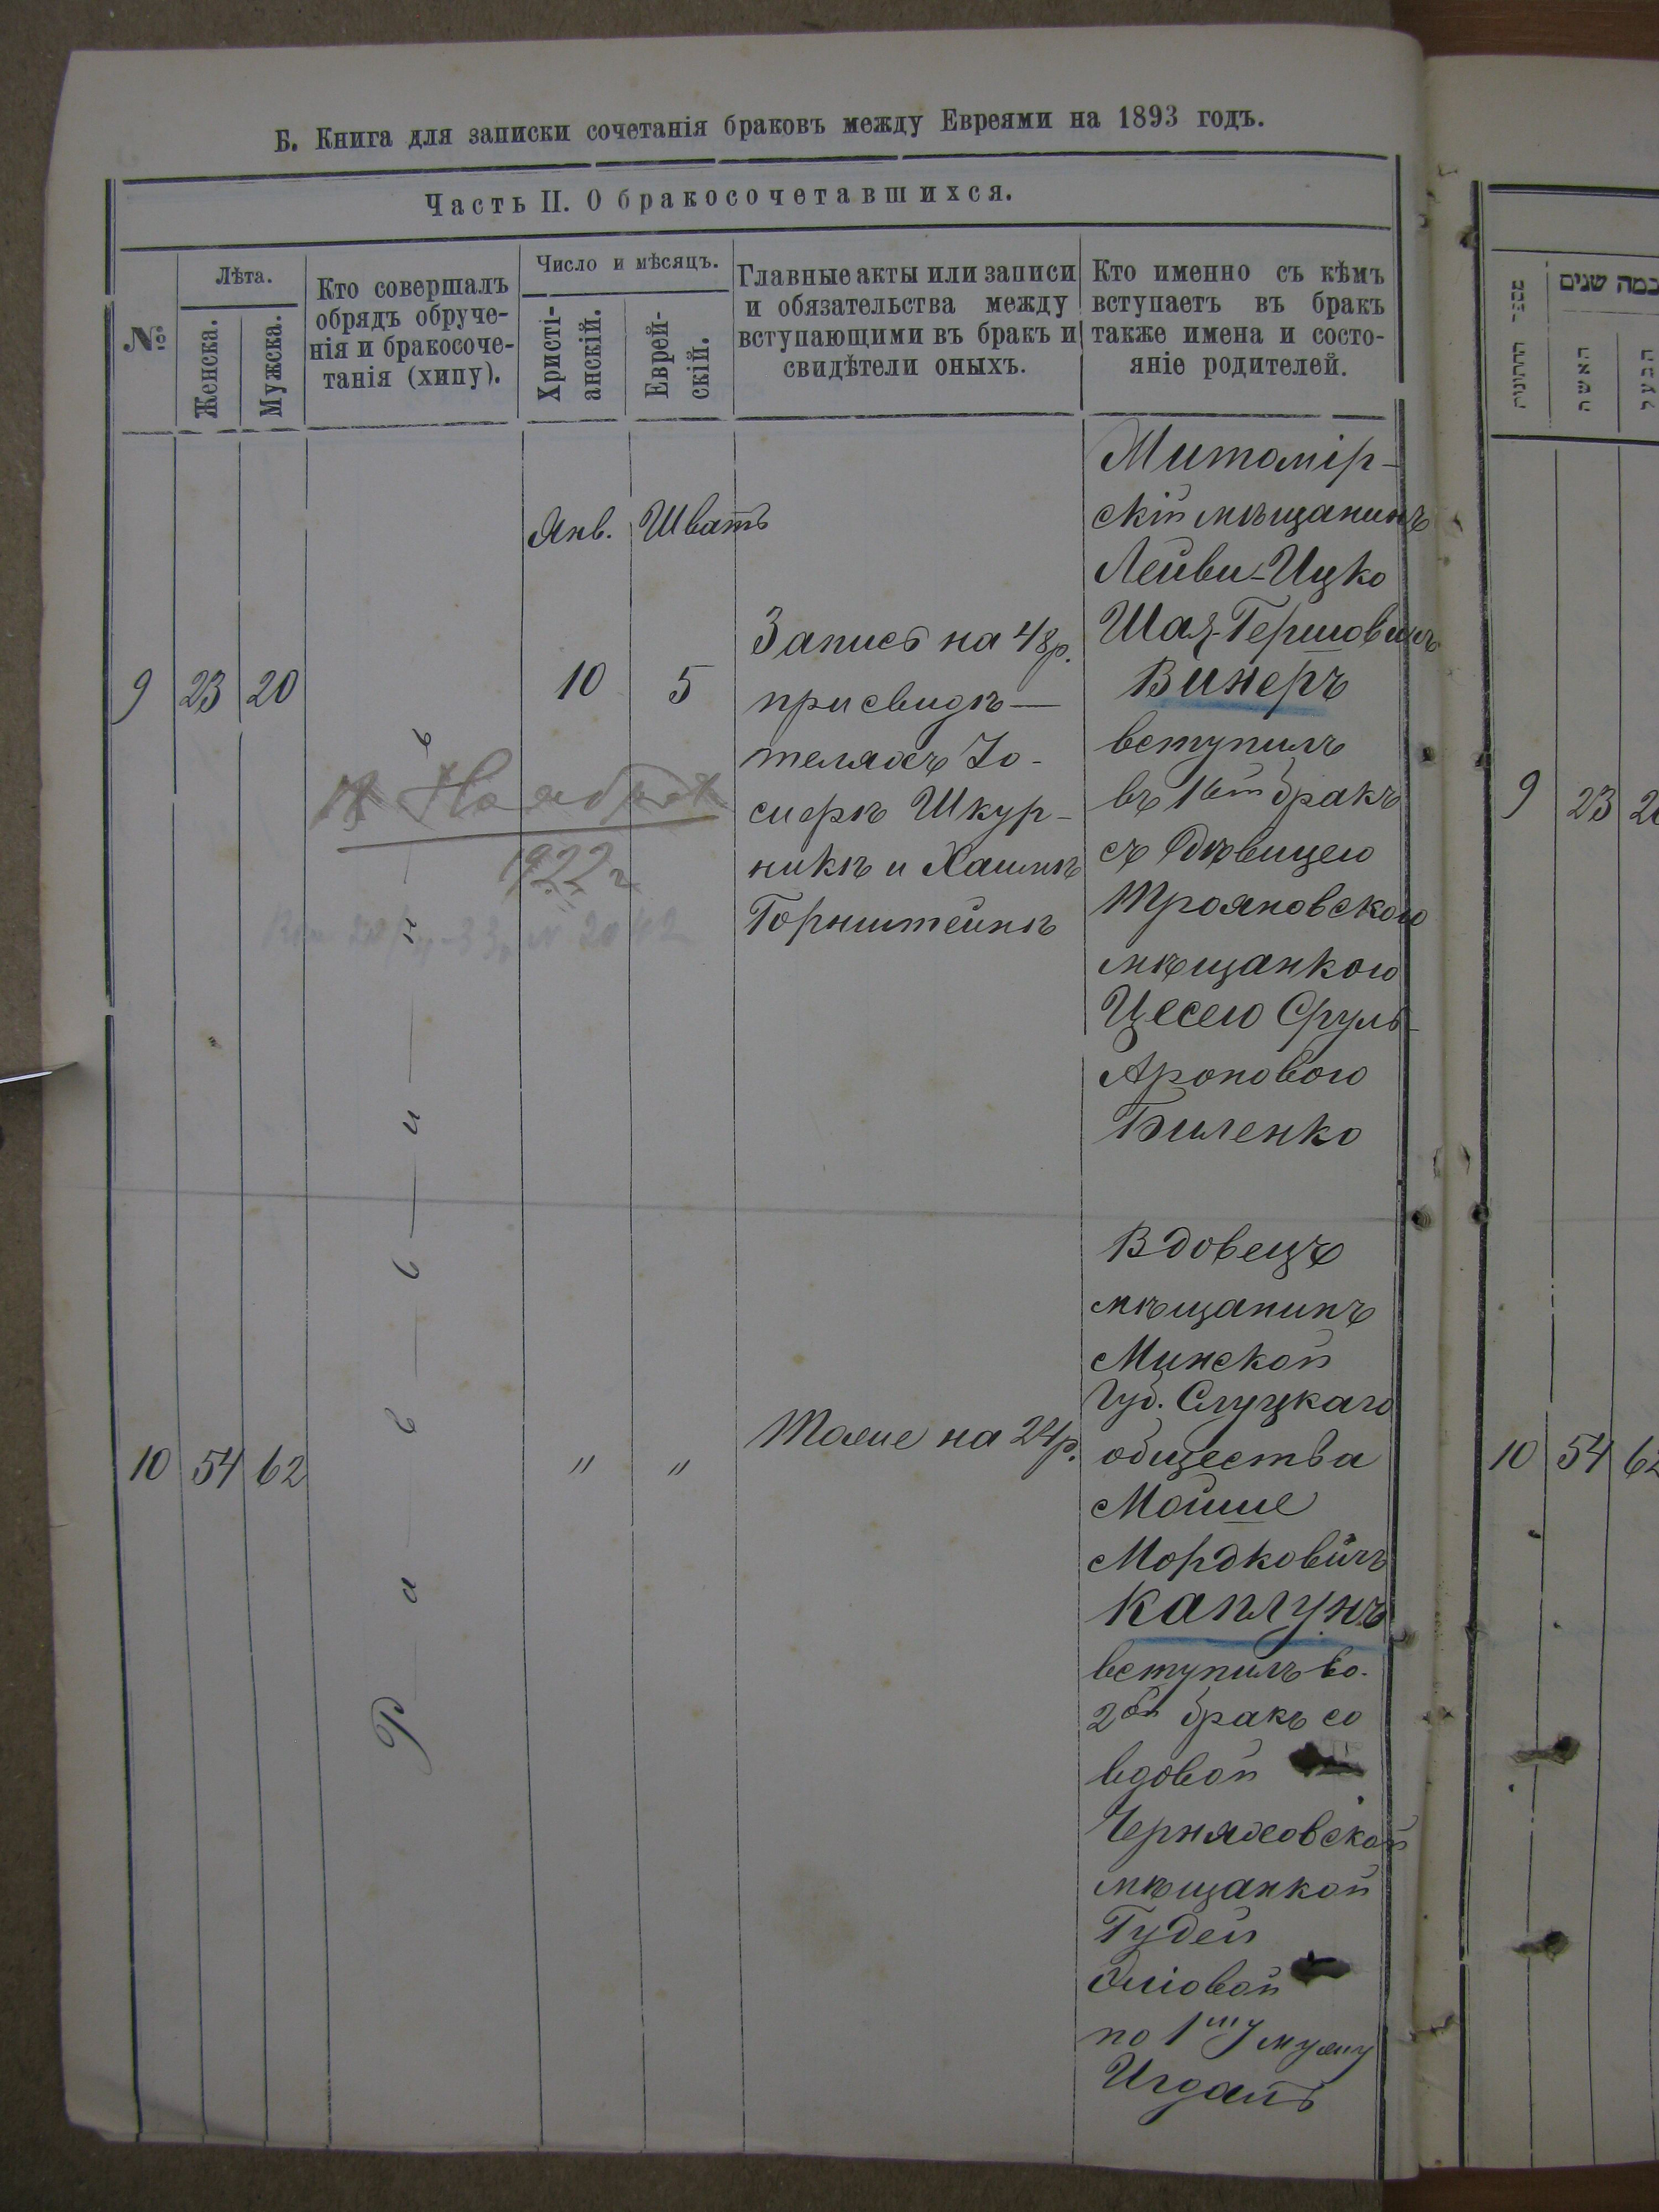 Б. Книга для записки сочетанія браковъ между Евреями на 1893 годъ.
Часть II. О бракосочетавшихся.
№
Лѣта.
Женска.
Мужска.
Кто совершалъ
обрядъ обруче-
нія и бракосоче-
танія (хипу).
Число и мѣсяцъ.
Христі-
анскій.
Еврей-
скій.
Главные акты или записи
и обязательства между
вступающими въ бракъ и
свидѣтели оныхъ.
Кто именно съ кѣмъ
вступаетъ въ бракъ
также имена и состо-
яніе родителей.
9 23 20
Раввинъ
Янв. Шватъ
10 5
Запись на 48 р.
при свидѣ-
теляхъ Іо-
сифѣ Шкур-
никѣ и Хаимѣ
Горнштейнѣ
Житомір-
скій мѣщанинъ
Лейви-Ицко
Шая-Гершовичъ
Винеръ
вступилъ
въ 1ый бракъ
съ дѣвицею
Трояновскою
мѣщанкою
Цесею Сруль-
Ароновою
Биленко
1922 г.
10 54 62
" "
Тоже на 24 р.
Вдовецъ
мѣщанинъ
Минской
Губ. Слуцкаго
общества
Мойше
Мордковичъ
Каплунъ
вступилъ во
2ой бракъ со
вдовой
Черняховской
мѣщанкой
Гудей
по 1му мужу
מספר החתונות
כמה שנים
האשה
הבעל
9 23
10 54 62